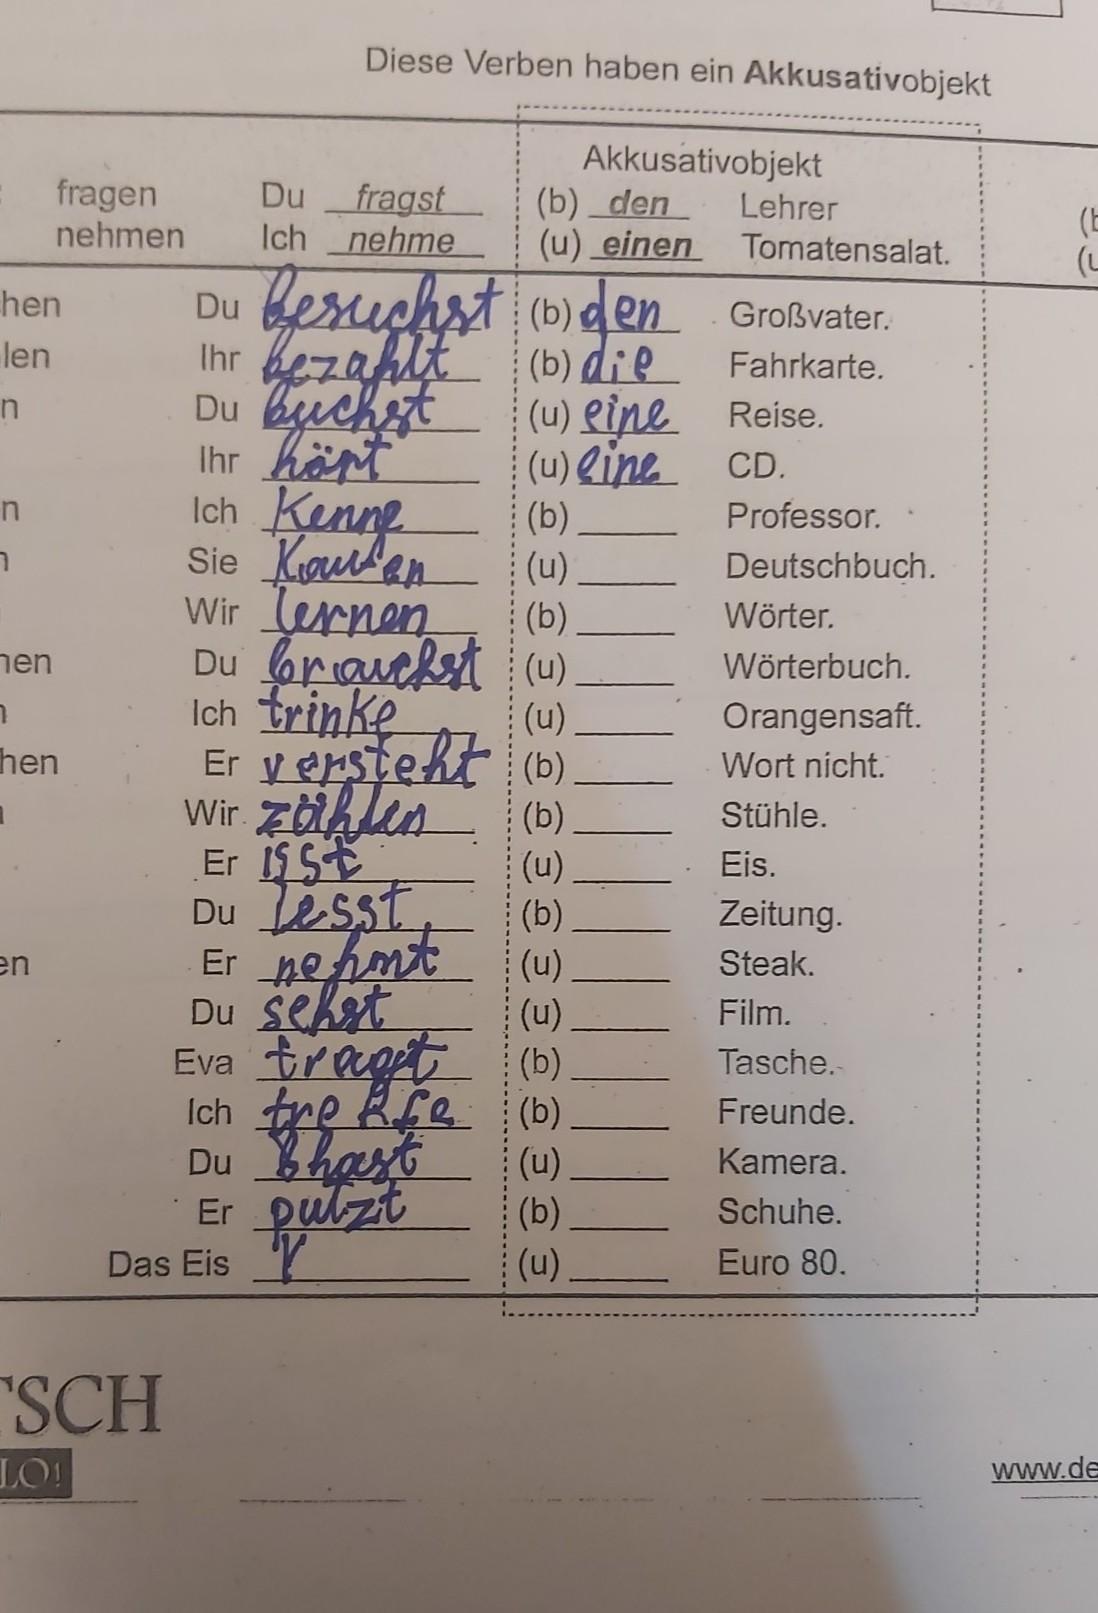 Diese Verben haben ein Akkusativobjekt
Akkusativobjekt
fragen Du fragst (b) den Lehrer (b
nehmen Ich nehme (u) einen Tomatensalat. (u
hen Du besuchst (b) den Großvater.
len Ihr bezahlt (b) die Fahrkarte.
n Du buchst (u) eine Reise.
Ihr hört (u) eine CD.
n Ich Kenne (b) ______ Professor.
n Sie Kaufen (u) ______ Deutschbuch.
Wir lernen (b) ______ Wörter.
hen Du brauchst (u) ______ Wörterbuch.
n Ich trinke (u) ______ Orangensaft.
hen Er versteht (b) ______ Wort nicht.
Wir zählen (b) ______ Stühle.
Er isst (u) ______ Eis.
Du lesst (b) ______ Zeitung.
en Er nehmt (u) ______ Steak.
Du sehst (u) ______ Film.
Eva tragt (b) ______ Tasche.
Ich treffe (b) ______ Freunde.
Du hast (u) ______ Kamera.
Er putzt (b) ______ Schuhe.
Das Eis ______ (u) ______ Euro 80.
TSCH
LO!
www.de